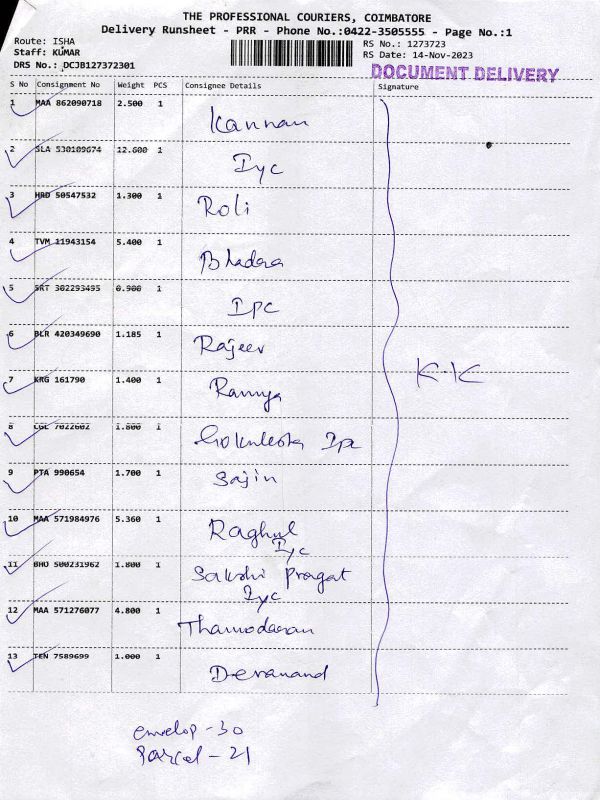 THE PROFESSIONAL COURIERS, COIMBATORE
Delivery Runsheet - PRR - Phone No.:0422-3505555 - Page No.:1
Route: ISHA
Staff: KUMAR
DRS No.: DCJB127372301
RS No.: 1273723
RS Date: 14-Nov-2023
DOCUMENT DELIVERY
S No Consignment No Weight PCS Consignee Details Signature
1 MAA 862090718 2.500 1 Kannan
2 SLA 530109674 12.600 1 Iyc
3 HRD 50547532 1.300 1 Roli
4 TVM 11943154 5.400 1
5 SRT 302293495 0.900 1 Ipc
6 BLR 420349690 1.185 1 Rajeev
7 KRG 161790 1.400 1 Ramya
K.K
8 CGL 7022602 1.800 1 Ipc
9 PTA 990654 1.700 1 Sajin
10 MAA 571984976 5.360 1 Raghul
Iyc
11 BHO 500231962 1.800 1 Sakshi Pragat
Iyc
12 MAA 571276077 4.800 1 Thamodaran
13 TEN 7589699 1.000 1 Devanand
envelop - 30
Parcel - 21